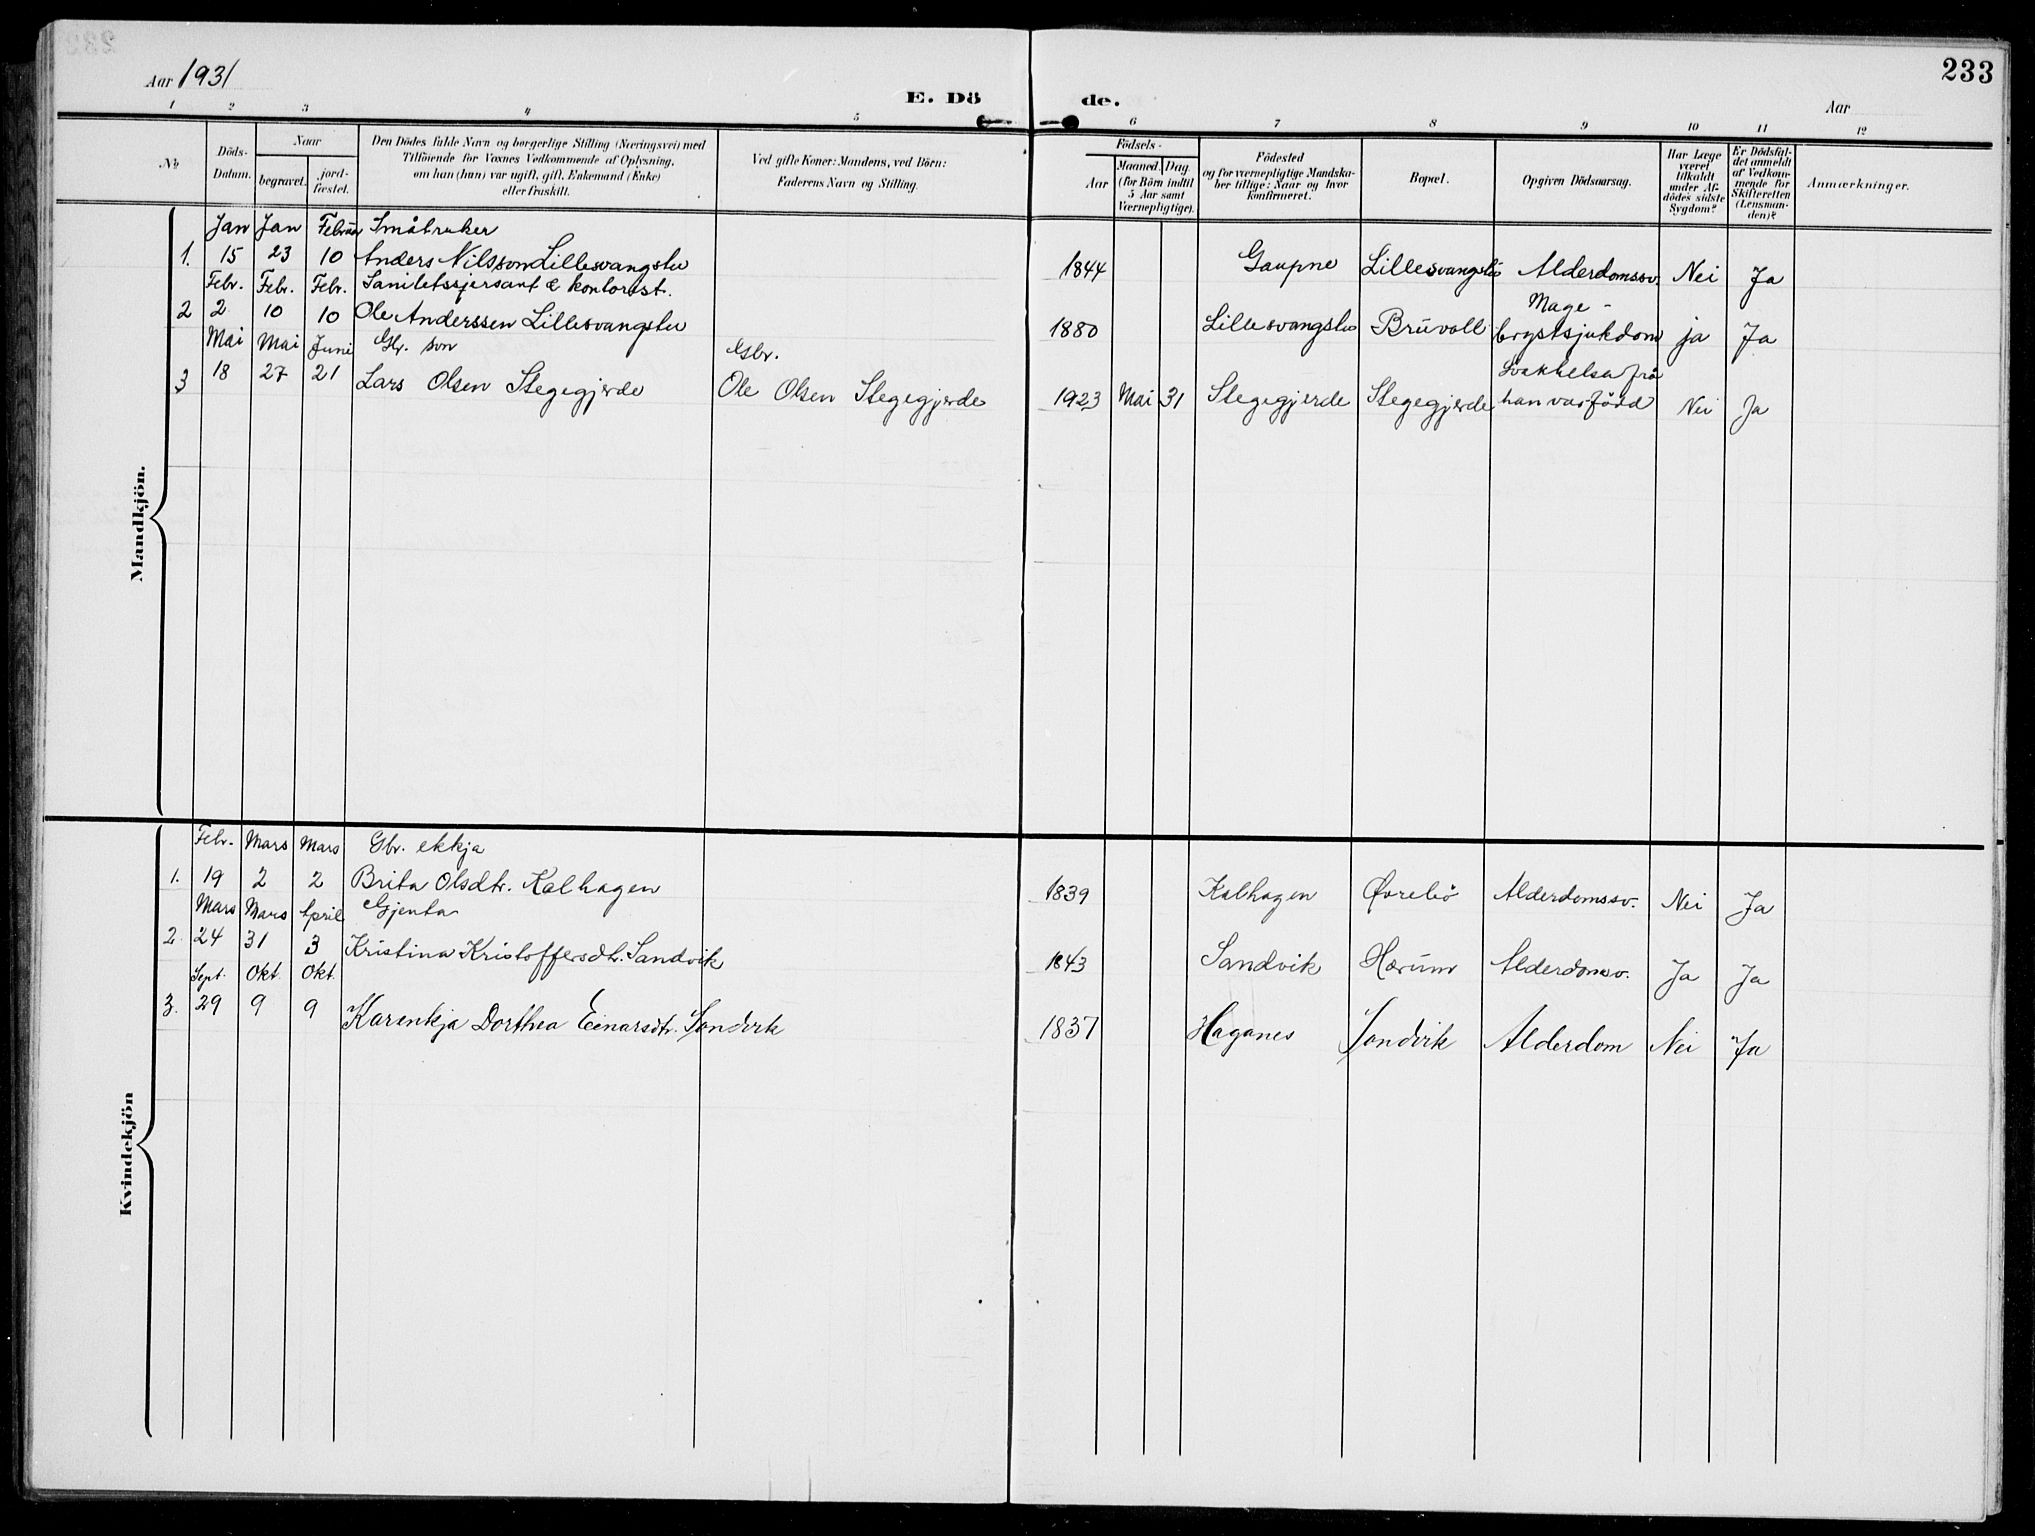 233
Aar 1931
E. Dö de.
Aar
1 2 3 4 5 6 7 8 9 10 11 12
No
Döds-
Datum.
Naar
begravet.
jord-
fæstet.
Den Dödes fulde Navn og borgerlige Stilling (Næringsvei) med
Tilföiende for Voxnes Vedkommende af Oplysning,
om han (hun) var ugift, gift, Enkemand (Enke)
eller fraskilt.
Ved gifte Koner: Mandens, ved Börn:
Faderens Navn og Stilling.
Födsels-
Aar
Maaned. Dag.
(for Börn indtil
5 Aar samt
Værnepligtige).
Födested
og for værnepligtige Mandska-
ber tillige: Naar og hvor
konfirmeret.
Bopæl.
Opgiven Dödsaarsag.
Har Læge
været
tilkaldt
under Af-
dödes sidste
Sygdom?
Er Dödsfal-
det anmeldt
af Vedkom-
mende for
Skifteretten
(Lensman-
den)?
Anmærkninger.
Mandkjön.
Jan Jan Februar Småbruker
1. 15 23 10 Anders Nilsson Lillesvangstu 1844 Gaupne Lillesvangstu Alderdomssv. Nei Ja
Febr. Febr. Febr. Sanitetssjersant & kontorist.
Mage-
2 2 10 10 Ole Anderssen Lillesvangstu 1880 Lillesvangstu Bruvoll brystsjukdom ja Ja
Mai Mai Juni Gbr. son Gbr. Svakhelsa frå
3 18 27 21 Lars Olsen Stegegjerde Ole Olsen Stegegjerde 1923 Mai 31 Stegegjerde Stegegjerde han var född Nei Ja
Kvindekjön
Febr. Mars Mars Gbr. ekkja
1. 19 2 2 Brita Olsdtr. Kalhagen 1839 Kalhagen Øvrebö Alderdomssv. Nei Ja
Mars Mars April Gjenta
2. 24 31 3 Kristina Kristoffersdtr. Sandvik 1843 Sandvik Hærum Alderdomsv. Ja Ja
Sept. Okt. Okt.
3. 29 9 9 Karenkja Dorthea Einarsdtr. Sandvik 1837 Haganes Sandvik Alderdom Nei Ja